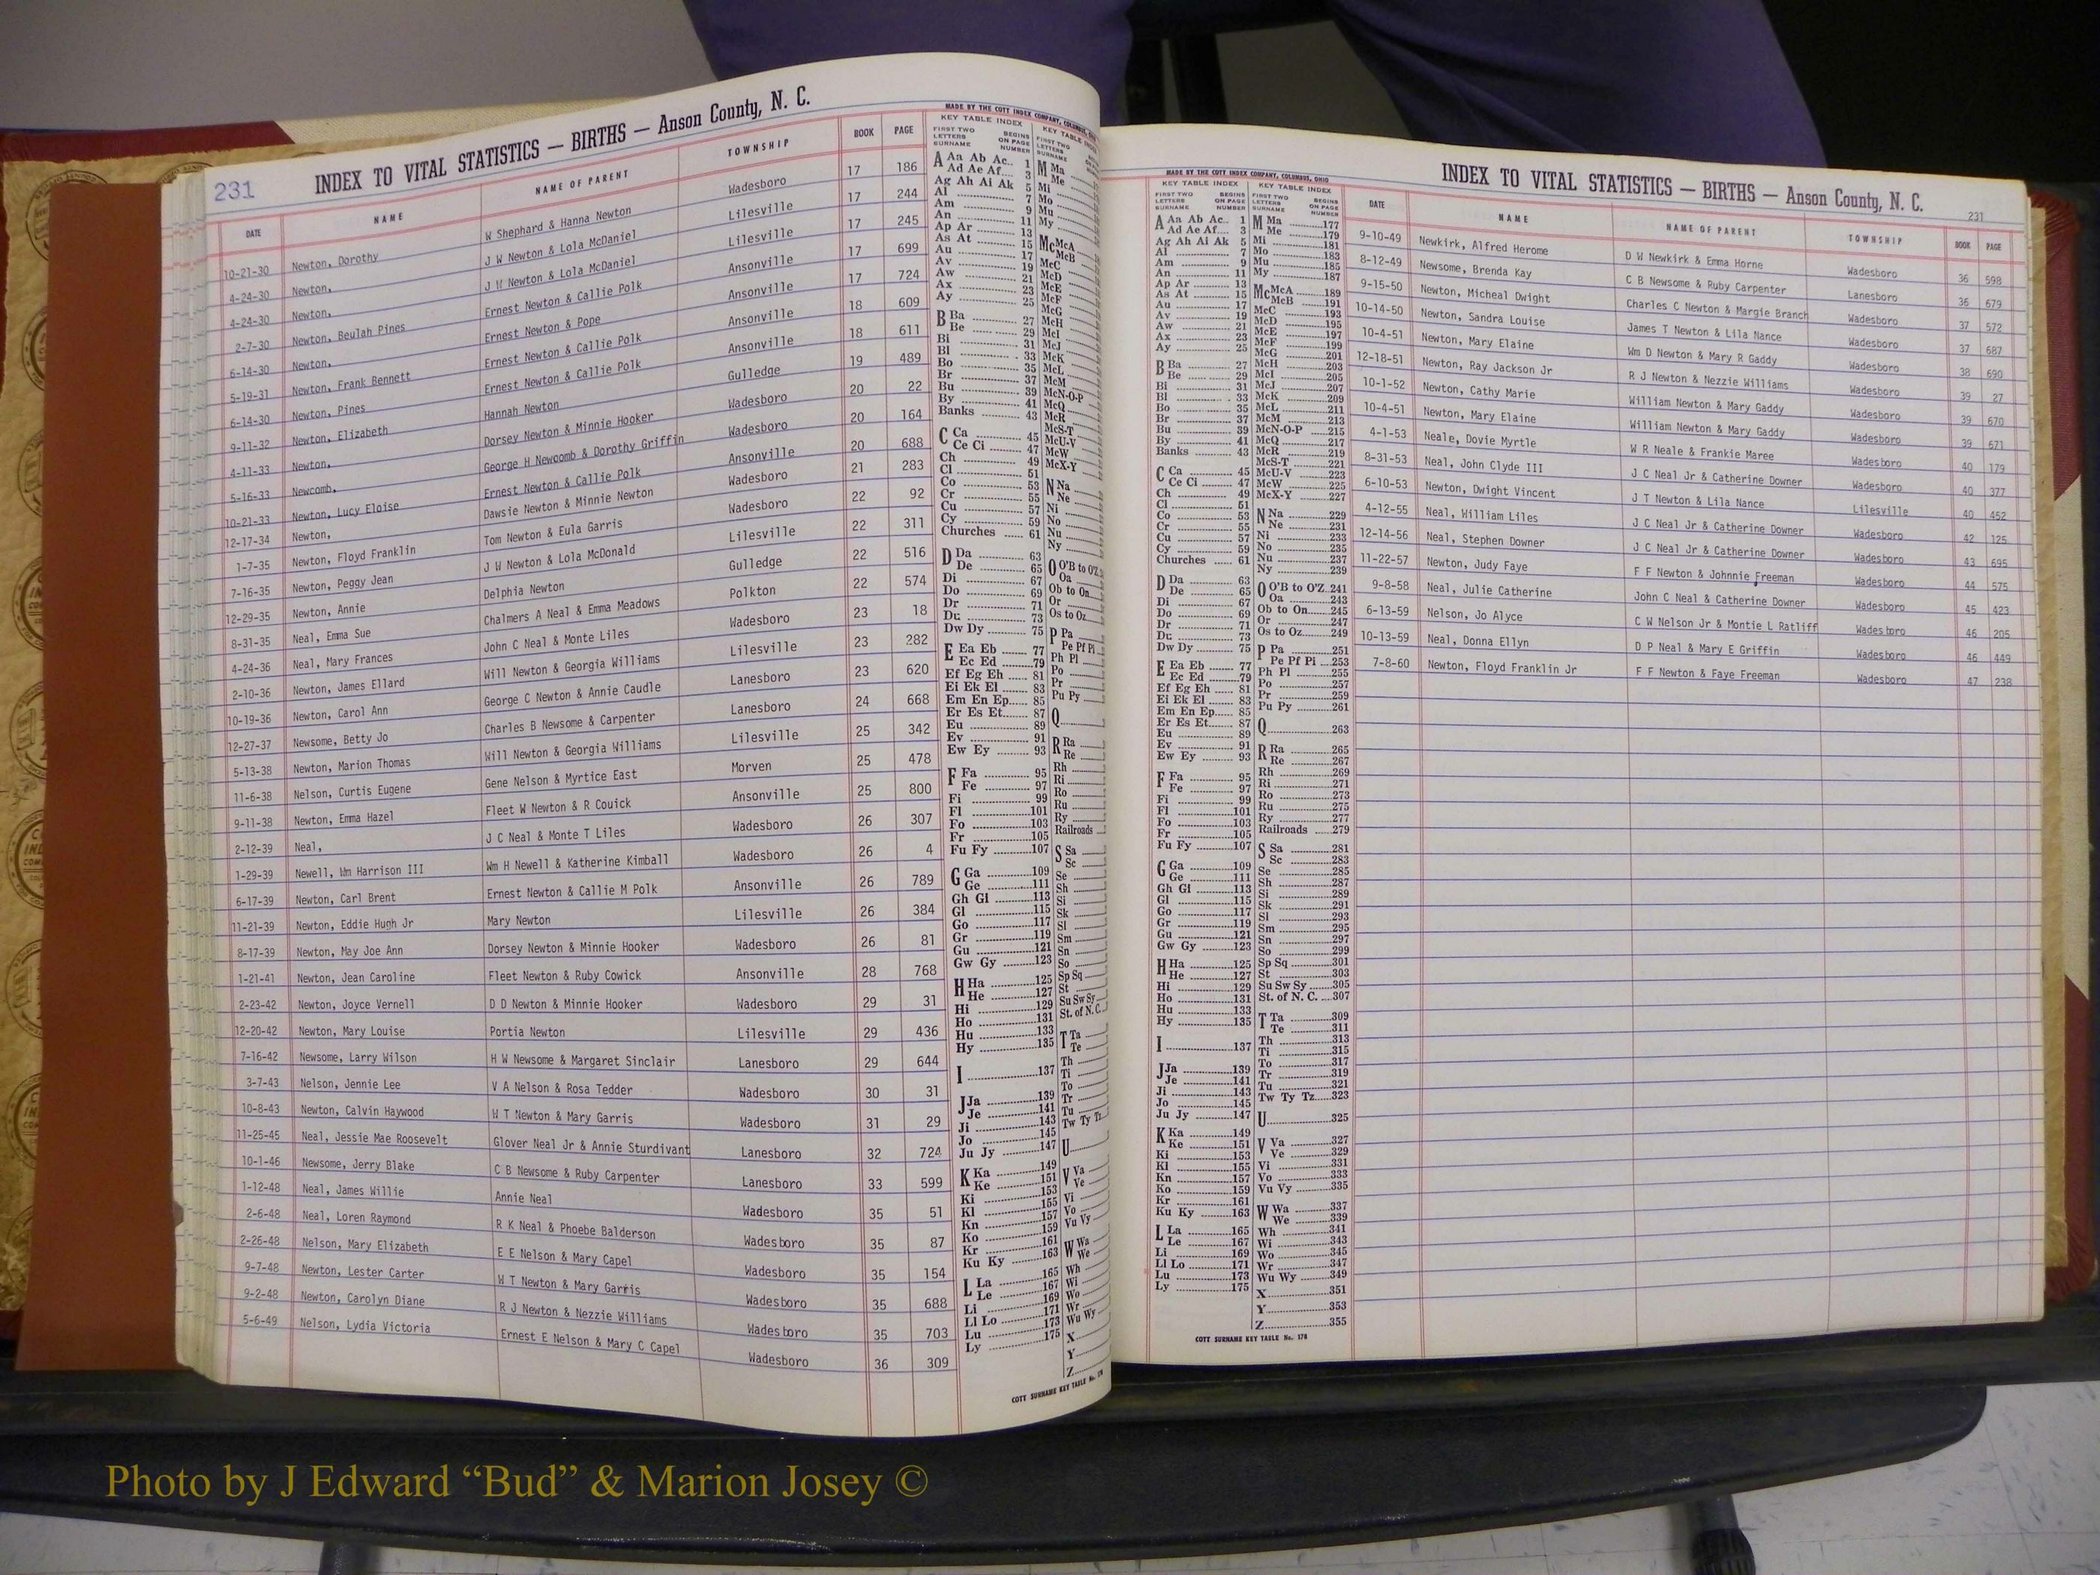 231
INDEX TO VITAL STATISTICS — BIRTHS — Anson County, N. C.
DATE NAME NAME OF PARENT TOWNSHIP BOOK PAGE
10-21-30 Newton, Dorothy W Shephard & Hanna Newton Wadesboro 17 186
4-24-30 Newton, J W Newton & Lola McDaniel Lilesville 17 244
4-24-30 Newton, J W Newton & Lola McDaniel Lilesville 17 245
2-7-30 Newton, Beulah Pines Ernest Newton & Callie Polk Ansonville 17 699
6-14-30 Newton, Ernest Newton & Pope Ansonville 17 724
5-19-31 Newton, Frank Bennett Ernest Newton & Callie Polk Ansonville 18 609
6-14-30 Newton, Pines Ernest Newton & Callie Polk Ansonville 18 611
9-11-32 Newton, Elizabeth Hannah Newton Gulledge 19 489
4-11-33 Newton, Dorsey Newton & Minnie Hooker Wadesboro 20 22
5-16-33 Newcomb, George H Newcomb & Dorothy Griffin Wadesboro 20 164
10-21-33 Newton, Lucy Eloise Ernest Newton & Callie Polk Ansonville 20 688
12-17-34 Newton, Dawsie Newton & Minnie Newton Wadesboro 21 283
1-7-35 Newton, Floyd Franklin Tom Newton & Eula Garris Wadesboro 22 92
7-16-35 Newton, Peggy Jean J W Newton & Lola McDonald Lilesville 22 311
12-29-35 Newton, Annie Delphia Newton Gulledge 22 516
8-31-35 Neal, Emma Sue Chalmers A Neal & Emma Meadows Polkton 22 574
4-24-36 Neal, Mary Frances John C Neal & Monte Liles Wadesboro 23 18
2-10-36 Newton, James Ellard Will Newton & Georgia Williams Lilesville 23 282
10-19-36 Newton, Carol Ann George C Newton & Annie Caudle Lanesboro 23 620
12-27-37 Newsome, Betty Jo Charles B Newsome & Carpenter Lanesboro 24 668
5-13-38 Newton, Marion Thomas Will Newton & Georgia Williams Lilesville 25 342
11-6-38 Nelson, Curtis Eugene Gene Nelson & Myrtice East Morven 25 478
9-11-38 Newton, Emma Hazel Fleet W Newton & R Couick Ansonville 25 800
2-12-39 Neal, J C Neal & Monte T Liles Wadesboro 26 307
1-29-39 Newell, Wm Harrison III Wm H Newell & Katherine Kimball Wadesboro 26 4
6-17-39 Newton, Carl Brent Ernest Newton & Callie M Polk Ansonville 26 789
11-21-39 Newton, Eddie Hugh Jr Mary Newton Lilesville 26 384
8-17-39 Newton, May Joe Ann Dorsey Newton & Minnie Hooker Wadesboro 26 81
1-21-41 Newton, Jean Caroline Fleet Newton & Ruby Cowick Ansonville 28 768
2-23-42 Newton, Joyce Vernell D D Newton & Minnie Hooker Wadesboro 29 31
12-20-42 Newton, Mary Louise Portia Newton Lilesville 29 436
7-16-42 Newsome, Larry Wilson H W Newsome & Margaret Sinclair Lanesboro 29 644
3-7-43 Nelson, Jennie Lee V A Nelson & Rosa Tedder Wadesboro 30 31
10-8-43 Newton, Calvin Haywood W T Newton & Mary Garris Wadesboro 31 29
11-25-45 Neal, Jessie Mae Roosevelt Glover Neal Jr & Annie Sturdivant Lanesboro 32 724
10-1-46 Newsome, Jerry Blake C B Newsome & Ruby Carpenter Lanesboro 33 599
1-12-48 Neal, James Willie Annie Neal Wadesboro 35 51
2-6-48 Neal, Loren Raymond R K Neal & Phoebe Balderson Wadesboro 35 87
2-26-48 Nelson, Mary Elizabeth E E Nelson & Mary Capel Wadesboro 35 154
9-7-48 Newton, Lester Carter W T Newton & Mary Garris Wadesboro 35 688
9-2-48 Newton, Carolyn Diane R J Newton & Nezzie Williams Wadesboro 35 703
5-6-49 Nelson, Lydia Victoria Ernest E Nelson & Mary C Capel Wadesboro 36 309
MADE BY THE COTT INDEX COMPANY, COLUMBUS,
KEY TABLE INDEX
FIRST TWO LETTERS SURNAME BEGINS ON PAGE NUMBER
A Aa Ab Ac 1
Ad Ae Af 3
Ag Ah Ai Ak 5
Al 7
Am 9
An 11
Ap Ar 13
As At 15
Au 17
Av 19
Aw 21
Ax 23
Ay 25
B Ba 27
Be 29
Bi 31
Bl 33
Bo 35
Br 37
Bu 39
By 41
Banks 43
C Ca 45
Ce Ci 47
Ch 49
Cl 51
Co 53
Cr 55
Cu 57
Cy 59
Churches 61
D Da 63
De 65
Di 67
Do 69
Dr 71
Du 73
Dw Dy 75
E Ea Eb 77
Ec Ed 79
Ef Eg Eh 81
Ei Ek El 83
Em En Ep 85
Er Es Et 87
Eu 89
Ev 91
Ew Ey 93
F Fa 95
Fe 97
Fi 99
Fl 101
Fo 103
Fr 105
Fu Fy 107
G Ga 109
Ge 111
Gh Gi 113
Gl 115
Go 117
Gr 119
Gu 121
Gw Gy 123
H Ha 125
He 127
Hi 129
Ho 131
Hu 133
Hy 135
I 137
J Ja 139
Je 141
Ji 143
Jo 145
Ju Jy 147
K Ka 149
Ke 151
Ki 153
Kl 155
Kn 157
Ko 159
Kr 161
Ku Ky 163
L La 165
Le 167
Li 169
Ll Lo 171
Lu 173
Ly 175
COTT SURNAME KEY TABLE No. 178
MADE BY THE COTT INDEX COMPANY, COLUMBUS, OHIO
KEY TABLE INDEX KEY TABLE INDEX
FIRST TWO LETTERS SURNAME BEGINS ON PAGE NUMBER FIRST TWO LETTERS SURNAME BEGINS ON PAGE NUMBER
A Aa Ab Ac 1
Ad Ae Af 3
Ag Ah Ai Ak 5
Al 7
Am 9
An 11
Ap Ar 13
As At 15
Au 17
Av 19
Aw 21
Ax 23
Ay 25
B Ba 27
Be 29
Bi 31
Bl 33
Bo 35
Br 37
Bu 39
By 41
Banks 43
C Ca 45
Ce Ci 47
Ch 49
Cl 51
Co 53
Cr 55
Cu 57
Cy 59
Churches 61
D Da 63
De 65
Di 67
Do 69
Dr 71
Du 73
Dw Dy 75
E Ea Eb 77
Ec Ed 79
Ef Eg Eh 81
Ei Ek El 83
Em En Ep 85
Er Es Et 87
Eu 89
Ev 91
Ew Ey 93
F Fa 95
Fe 97
Fi 99
Fl 101
Fo 103
Fr 105
Fu Fy 107
G Ga 109
Ge 111
Gh Gi 113
Gl 115
Go 117
Gr 119
Gu 121
Gw Gy 123
H Ha 125
He 127
Hi 129
Ho 131
Hu 133
Hy 135
I 137
J Ja 139
Je 141
Ji 143
Jo 145
Ju Jy 147
K Ka 149
Ke 151
Ki 153
Kl 155
Kn 157
Ko 159
Kr 161
Ku Ky 163
L La 165
Le 167
Li 169
Ll Lo 171
Lu 173
Ly 175
M Ma 177
Me 179
Mi 181
Mo 183
Mu 185
My 187
Mc McA 189
McB 191
McC 193
McD 195
McE 197
McF 199
McG 201
McH 203
McI 205
McJ 207
McK 209
McL 211
McM 213
McN-O-P 215
McQ 217
McR 219
McS-T 221
McU-V 223
McW 225
McX-Y 227
N Na 229
Ne 231
Ni 233
No 235
Nu 237
Ny 239
O O'B to O'Z 241
Oa 243
Ob to On 245
Or 247
Os to Oz 249
P Pa 251
Pe Pf Pi 253
Ph Pl 255
Po 257
Pr 259
Pu Py 261
Q 263
R Ra 265
Re 267
Rh 269
Ri 271
Ro 273
Ru 275
Ry 277
Railroads 279
S Sa 281
Sc 283
Se 285
Sh 287
Si 289
Sk 291
Sl 293
Sm 295
Sn 297
So 299
Sp Sq 301
St 303
Su Sw Sy 305
St. of N. C. 307
T Ta 309
Te 311
Th 313
Ti 315
To 317
Tr 319
Tu 321
Tw Ty Tz 323
U 325
V Va 327
Ve 329
Vi 331
Vo 333
Vu Vy 335
W Wa 337
We 339
Wh 341
Wi 343
Wo 345
Wr 347
Wu Wy 349
X 351
Y 353
Z 355
COTT SURNAME KEY TABLE No. 178
INDEX TO VITAL STATISTICS — BIRTHS — Anson County, N. C.
231
DATE NAME NAME OF PARENT TOWNSHIP BOOK PAGE
9-10-49 Newkirk, Alfred Herome D W Newkirk & Emma Horne Wadesboro 36 598
8-12-49 Newsome, Brenda Kay C B Newsome & Ruby Carpenter Lanesboro 36 679
9-15-50 Newton, Micheal Dwight Charles C Newton & Margie Branch Wadesboro 37 572
10-14-50 Newton, Sandra Louise James T Newton & Lila Nance Wadesboro 37 687
10-4-51 Newton, Mary Elaine Wm D Newton & Mary R Gaddy Wadesboro 38 690
12-18-51 Newton, Ray Jackson Jr R J Newton & Nezzie Williams Wadesboro 39 27
10-1-52 Newton, Cathy Marie William Newton & Mary Gaddy Wadesboro 39 670
10-4-51 Newton, Mary Elaine William Newton & Mary Gaddy Wadesboro 39 671
4-1-53 Neale, Dovie Myrtle W R Neale & Frankie Maree Wadesboro 40 179
8-31-53 Neal, John Clyde III J C Neal Jr & Catherine Downer Wadesboro 40 377
6-10-53 Newton, Dwight Vincent J T Newton & Lila Nance Lilesville 40 452
4-12-55 Neal, William Liles J C Neal Jr & Catherine Downer Wadesboro 42 125
12-14-56 Neal, Stephen Downer J C Neal Jr & Catherine Downer Wadesboro 43 695
11-22-57 Newton, Judy Faye F F Newton & Johnnie Freeman Wadesboro 44 575
9-8-58 Neal, Julie Catherine John C Neal & Catherine Downer Wadesboro 45 423
6-13-59 Nelson, Jo Alyce C W Nelson Jr & Montie L Ratliff Wadesboro 46 205
10-13-59 Neal, Donna Ellyn D P Neal & Mary E Griffin Wadesboro 46 449
7-8-60 Newton, Floyd Franklin Jr F F Newton & Faye Freeman Wadesboro 47 238
Photo by J Edward “Bud” & Marion Josey ©